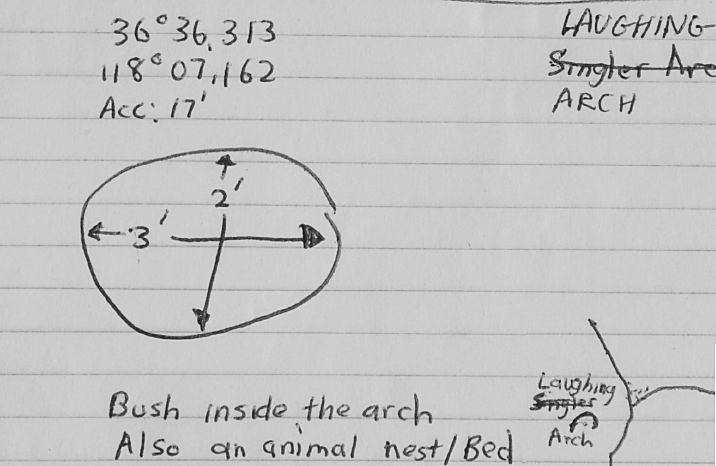 36°36.313
118°07.162
Acc: 17'
LAUGHING
ARCH
2'
3'
Bush inside the arch
Also an animal nest/Bed
Laughing
Arch